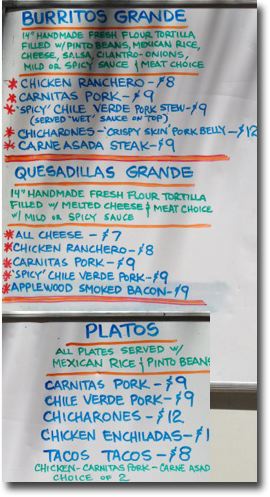 BURRITOS GRANDE
14" HANDMADE FRESH FLOUR TORTILLA
FILLED W/ PINTO BEANS, MEXICAN RICE,
CHEESE, SALSA, CILANTRO-ONIONS,
MILD OR SPICY SAUCE & MEAT CHOICE
* CHICKEN RANCHERO - $8
* CARNITAS PORK - $9
* 'SPICY' CHILE VERDE PORK STEW - $9
(SERVED "WET" SAUCE ON TOP)
* CHICHARONES - 'CRISPY SKIN' PORK BELLY - $12
* CARNE ASADA STEAK - $9
QUESADILLAS GRANDE
14" HANDMADE FRESH FLOUR TORTILLA
FILLED W/ MELTED CHEESE & MEAT CHOICE
W/ MILD OR SPICY SAUCE
* ALL CHEESE - $7
* CHICKEN RANCHERO - $8
* CARNITAS PORK - $9
* 'SPICY' CHILE VERDE PORK - $9
* APPLEWOOD SMOKED BACON - $9
PLATOS
ALL PLATES SERVED W/
MEXICAN RICE & PINTO BEANS
CARNITAS PORK - $9
CHILE VERDE PORK - $9
CHICHARONES - $12
CHICKEN ENCHILADAS - $1
TACOS TACOS - $8
CHICKEN - CARNITAS PORK - CARNE ASAD
CHOICE OF 2